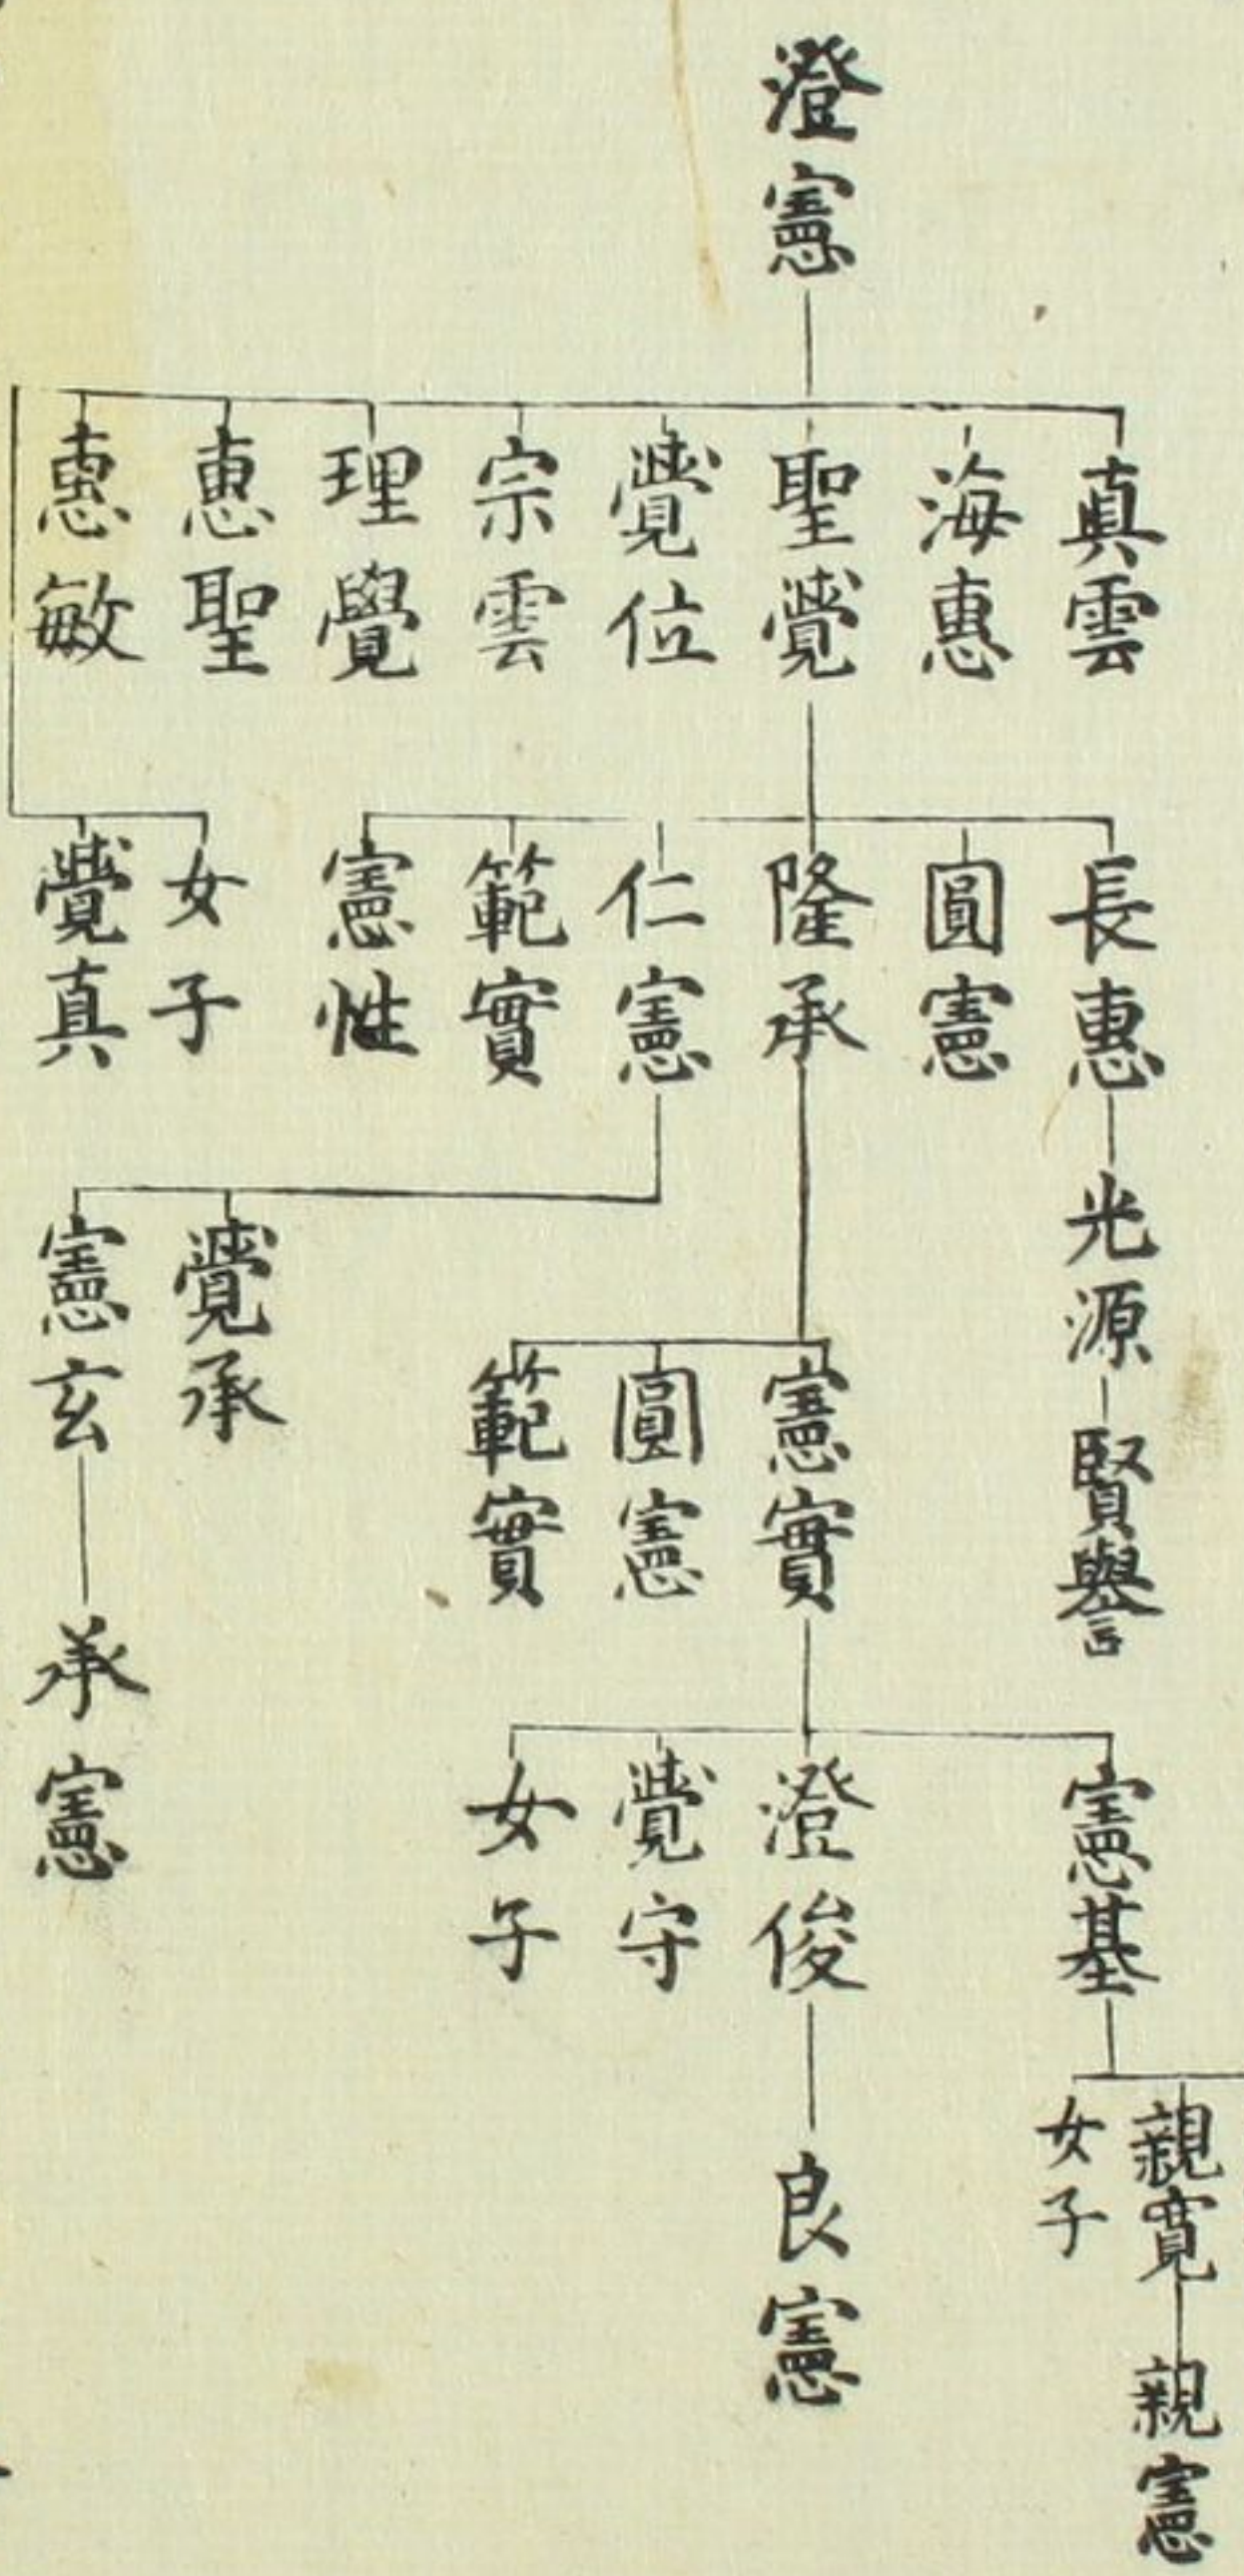 澄憲
真雲
海惠
聖覺
覺位
宗雲
理覺
惠聖
惠敏
長惠
圓憲
隆承
仁憲
範實
憲性
女子
覺真
光源
賢譽
憲實
圓憲
範實
覺承
憲玄
承憲
憲基
澄俊
覺守
女子
良憲
親寛
女子
親憲